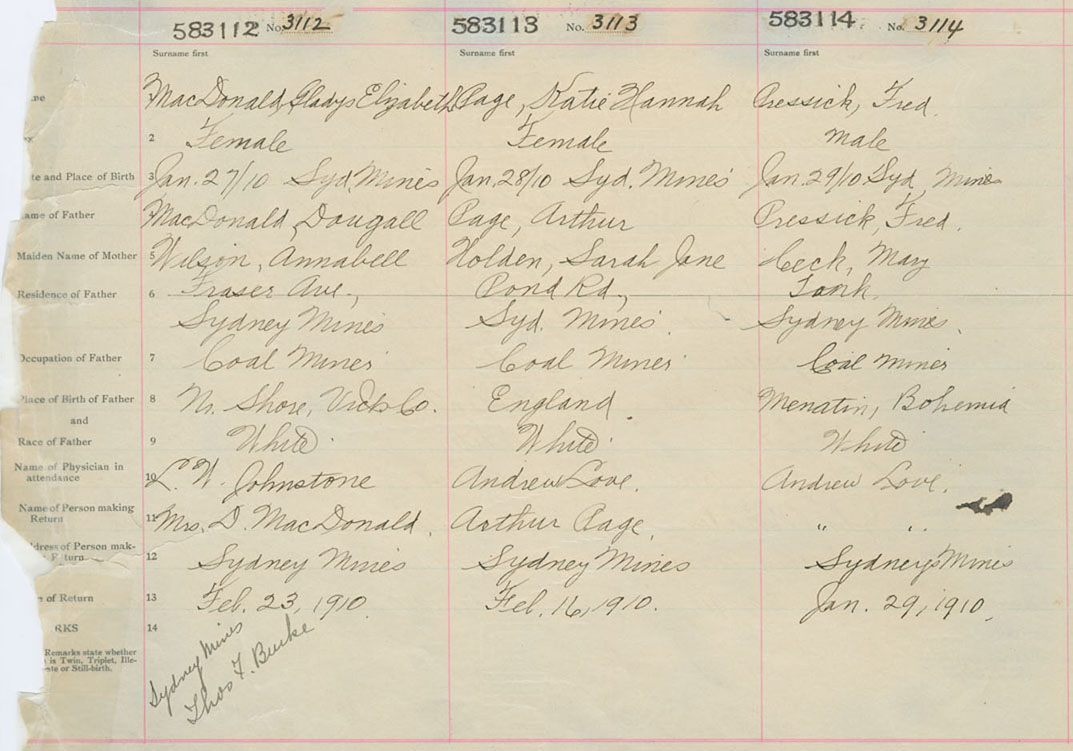 583112 No. 3112 583113 No. 3113 583114 No. 3114
Surname first Surname first Surname first
MacDonald, Gladys Elizabeth Page, Katie Hannah Pressick, Fred.
2 Female Female Male
te and Place of Birth 3 Jan. 27/10 Syd Mines Jan. 28/10 Syd. Mines Jan. 29/10 Syd Mines
ame of Father MacDonald, Dougall Page, Arthur Pressick, Fred.
Maiden Name of Mother 5 Wilson, Annabell Holden, Sarah Jane Heck, Mary
Residence of Father 6 Fraser Ave., Pond Rd.,
Sydney Mines Syd. Mines Sydney Mines.
Occupation of Father 7 Coal Miner Coal Miner Coal Miner
Place of Birth of Father 8 No. Shore, Vict. Co. England. Menatin, Bohemia
and
Race of Father 9 White White White
Name of Physician in
attendance 10 L. W. Johnstone Andrew Love. Andrew Love.
Name of Person making
Return 11 Mrs. D. MacDonald. Arthur Page. " "
dress of Person mak-
Return 12 Sydney Mines Sydney Mines Sydney Mines
of Return 13 Feb. 23, 1910. Feb. 16, 1910. Jan. 29, 1910.
RKS 14
Remarks state whether
is Twin, Triplet, Ille-
ate or Still-birth.
Sydney Mines
Thos F. Burke